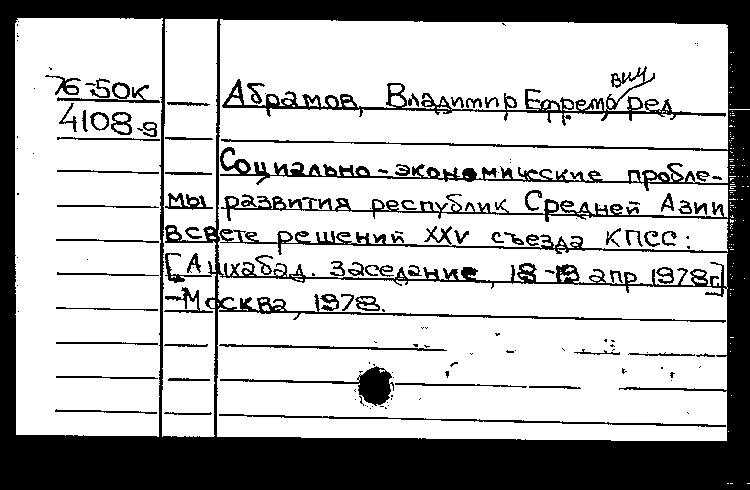 76-50к
4108-9
Абрамов, Владимир Ефремович ред.
Социально-экономические пробле-
мы развития республик Средней Азии
в свете решений XXV съезда КПСС:
[Ашхабад. Заседание, 18-19 апр 1978г.]
-Москва, 1978.